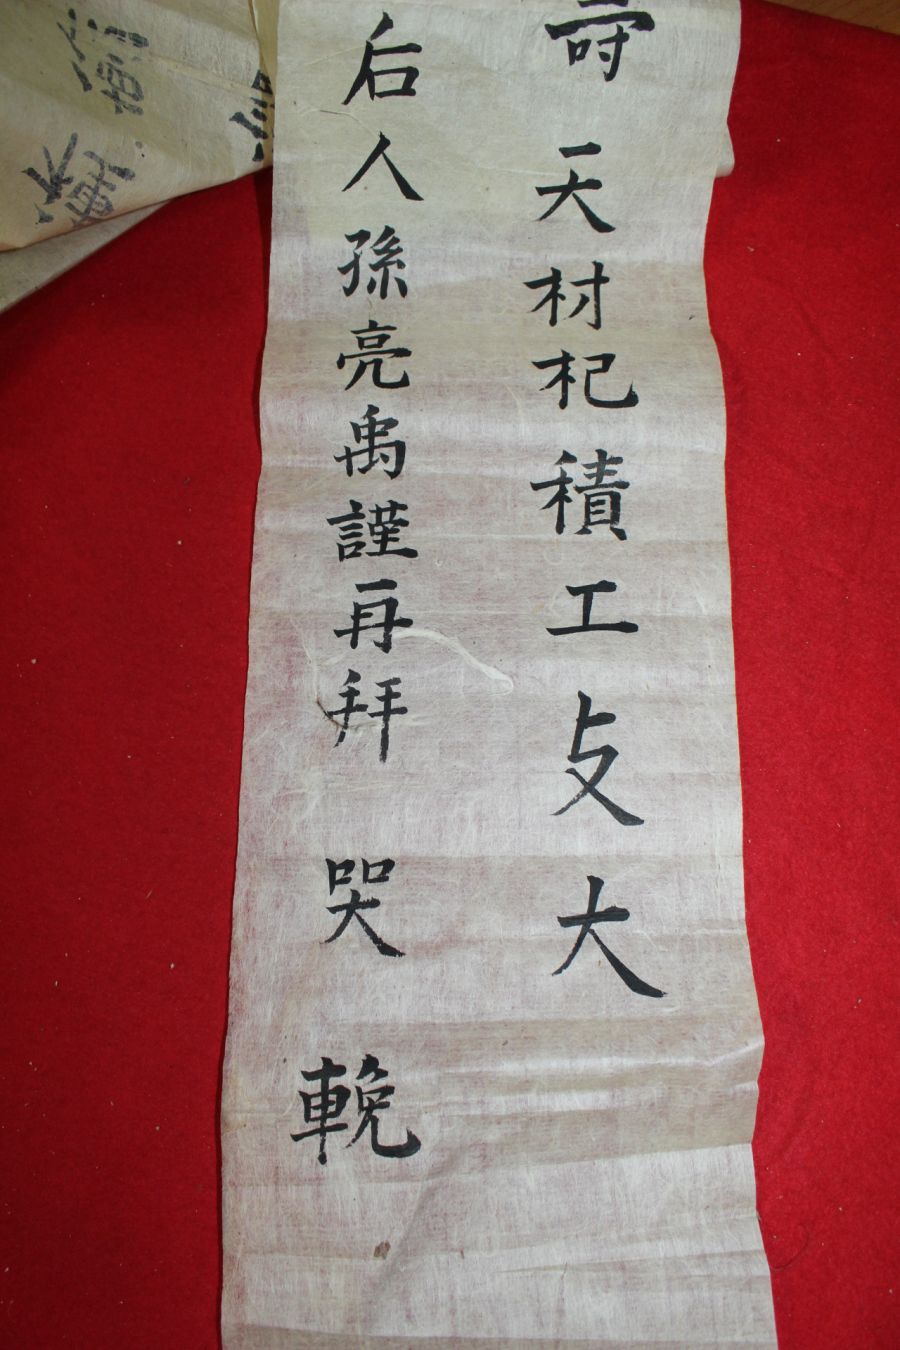 壽天材杞積工攴大
后人孫亮禹謹再拜哭輓